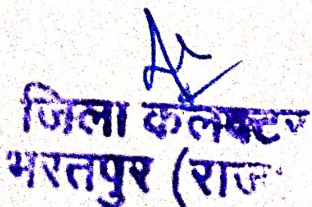 जिला कलक्टर
भरतपुर (राज